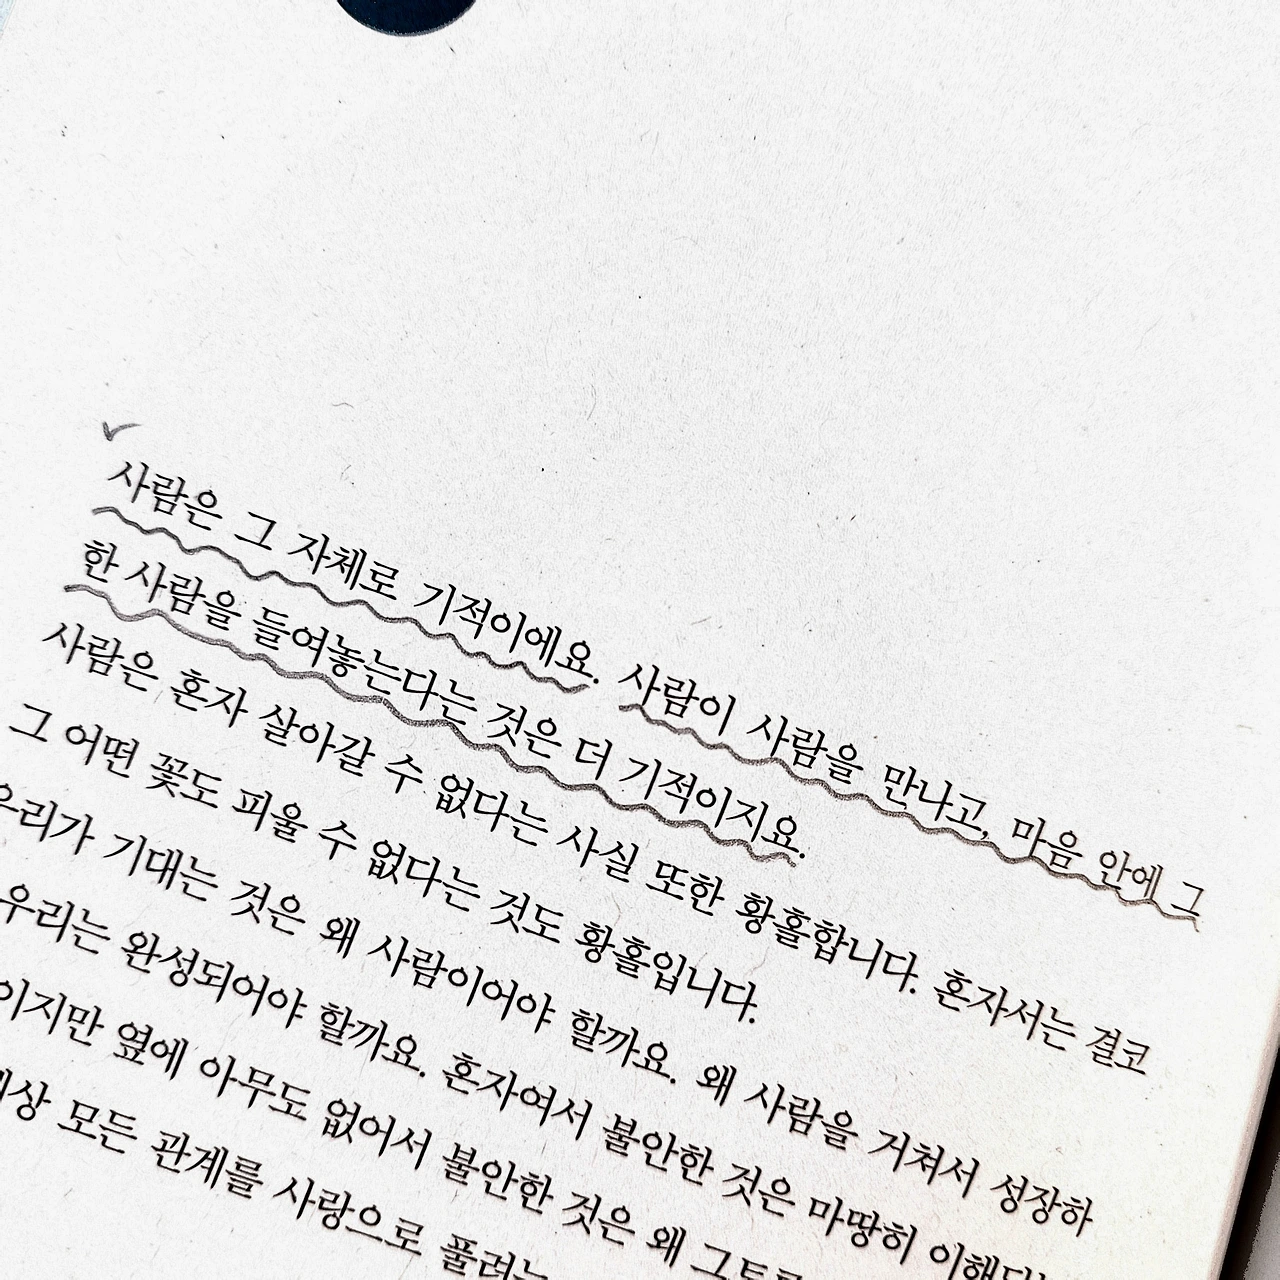 사람은 그 자체로 기적이에요. 사람이 사람을 만나고, 마음 안에 그
한 사람을 들여놓는다는 것은 더 기적이지요.
사람은 혼자 살아갈 수 없다는 사실 또한 황홀합니다. 혼자서는 결코
그 어떤 꽃도 피울 수 없다는 것도 황홀입니다.
우리가 기대는 것은 왜 사람이어야 할까요. 왜 사람을 거쳐서 성장하
우리는 완성되어야 할까요. 혼자여서 불안한 것은 마땅히
이지만 옆에 아무도 없어서 불안한 것은 왜
세상 모든 관계를 사랑으로